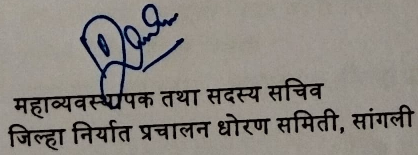 महाव्यवस्थापक तथा सदस्य सचिव
जिल्हा निर्यात प्रचालन धोरण समिती, सांगली